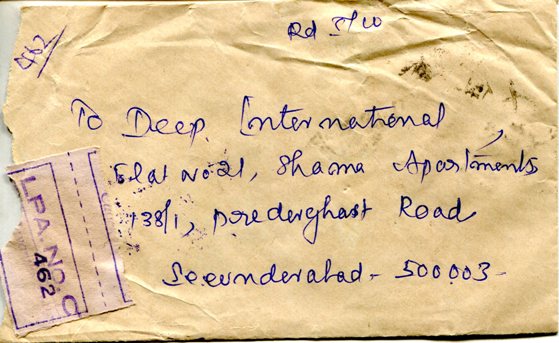 Rd 5/10
462
To Deep International,
Flat No 21, Shama Apartments
138/1, Prederghast Road
Secunderabad - 500003-
LPA. NO. C
462